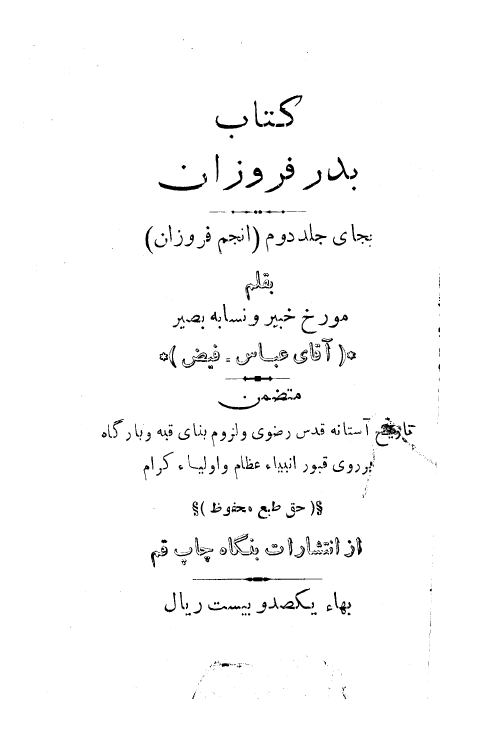 کتاب
بدر فروزان
بجای جلد دوم (انجم فروزان)
بقلم
مورخ خبیر و نسابه بصیر
*( آقای عباس - فیض )*
متضمن
تاریخ آستانه قدس رضوی و لزوم بنای قبه و بارگاه
بر روی قبور انبیاء عظام و اولیاء کرام
§( حق طبع محفوظ )§
از انتشارات بنگاه چاپ قم
بهاء یکصدو بیست ریال